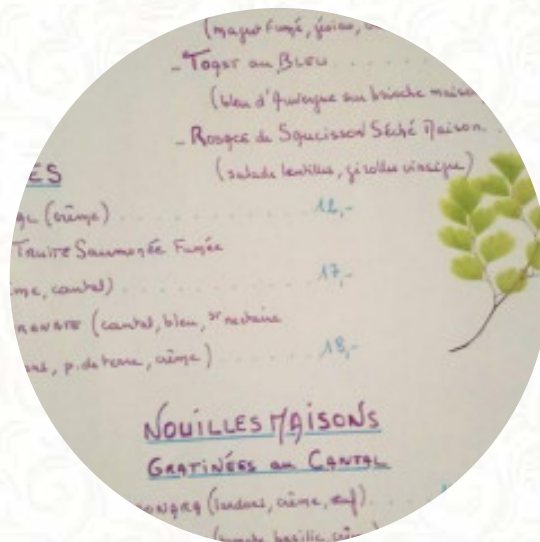 (magret Fumé, gésier,
- Toast au Bleu
(bleu d'Auvergne sur brioche maison
- Rosace de Saucisson Séché Maison
(salade lentilles, girolles vinaigre)
ES
(crème) 12,-
TRUITE Saumonée Fumée
cantal) 17,-
(cantal, bleu, St nectaire
p. de terre, crème) 18,-
NOUILLES MAISONS
GRATINÉES au CANTAL
(lardons, crème, œuf)
(tomate, basilic, crème)